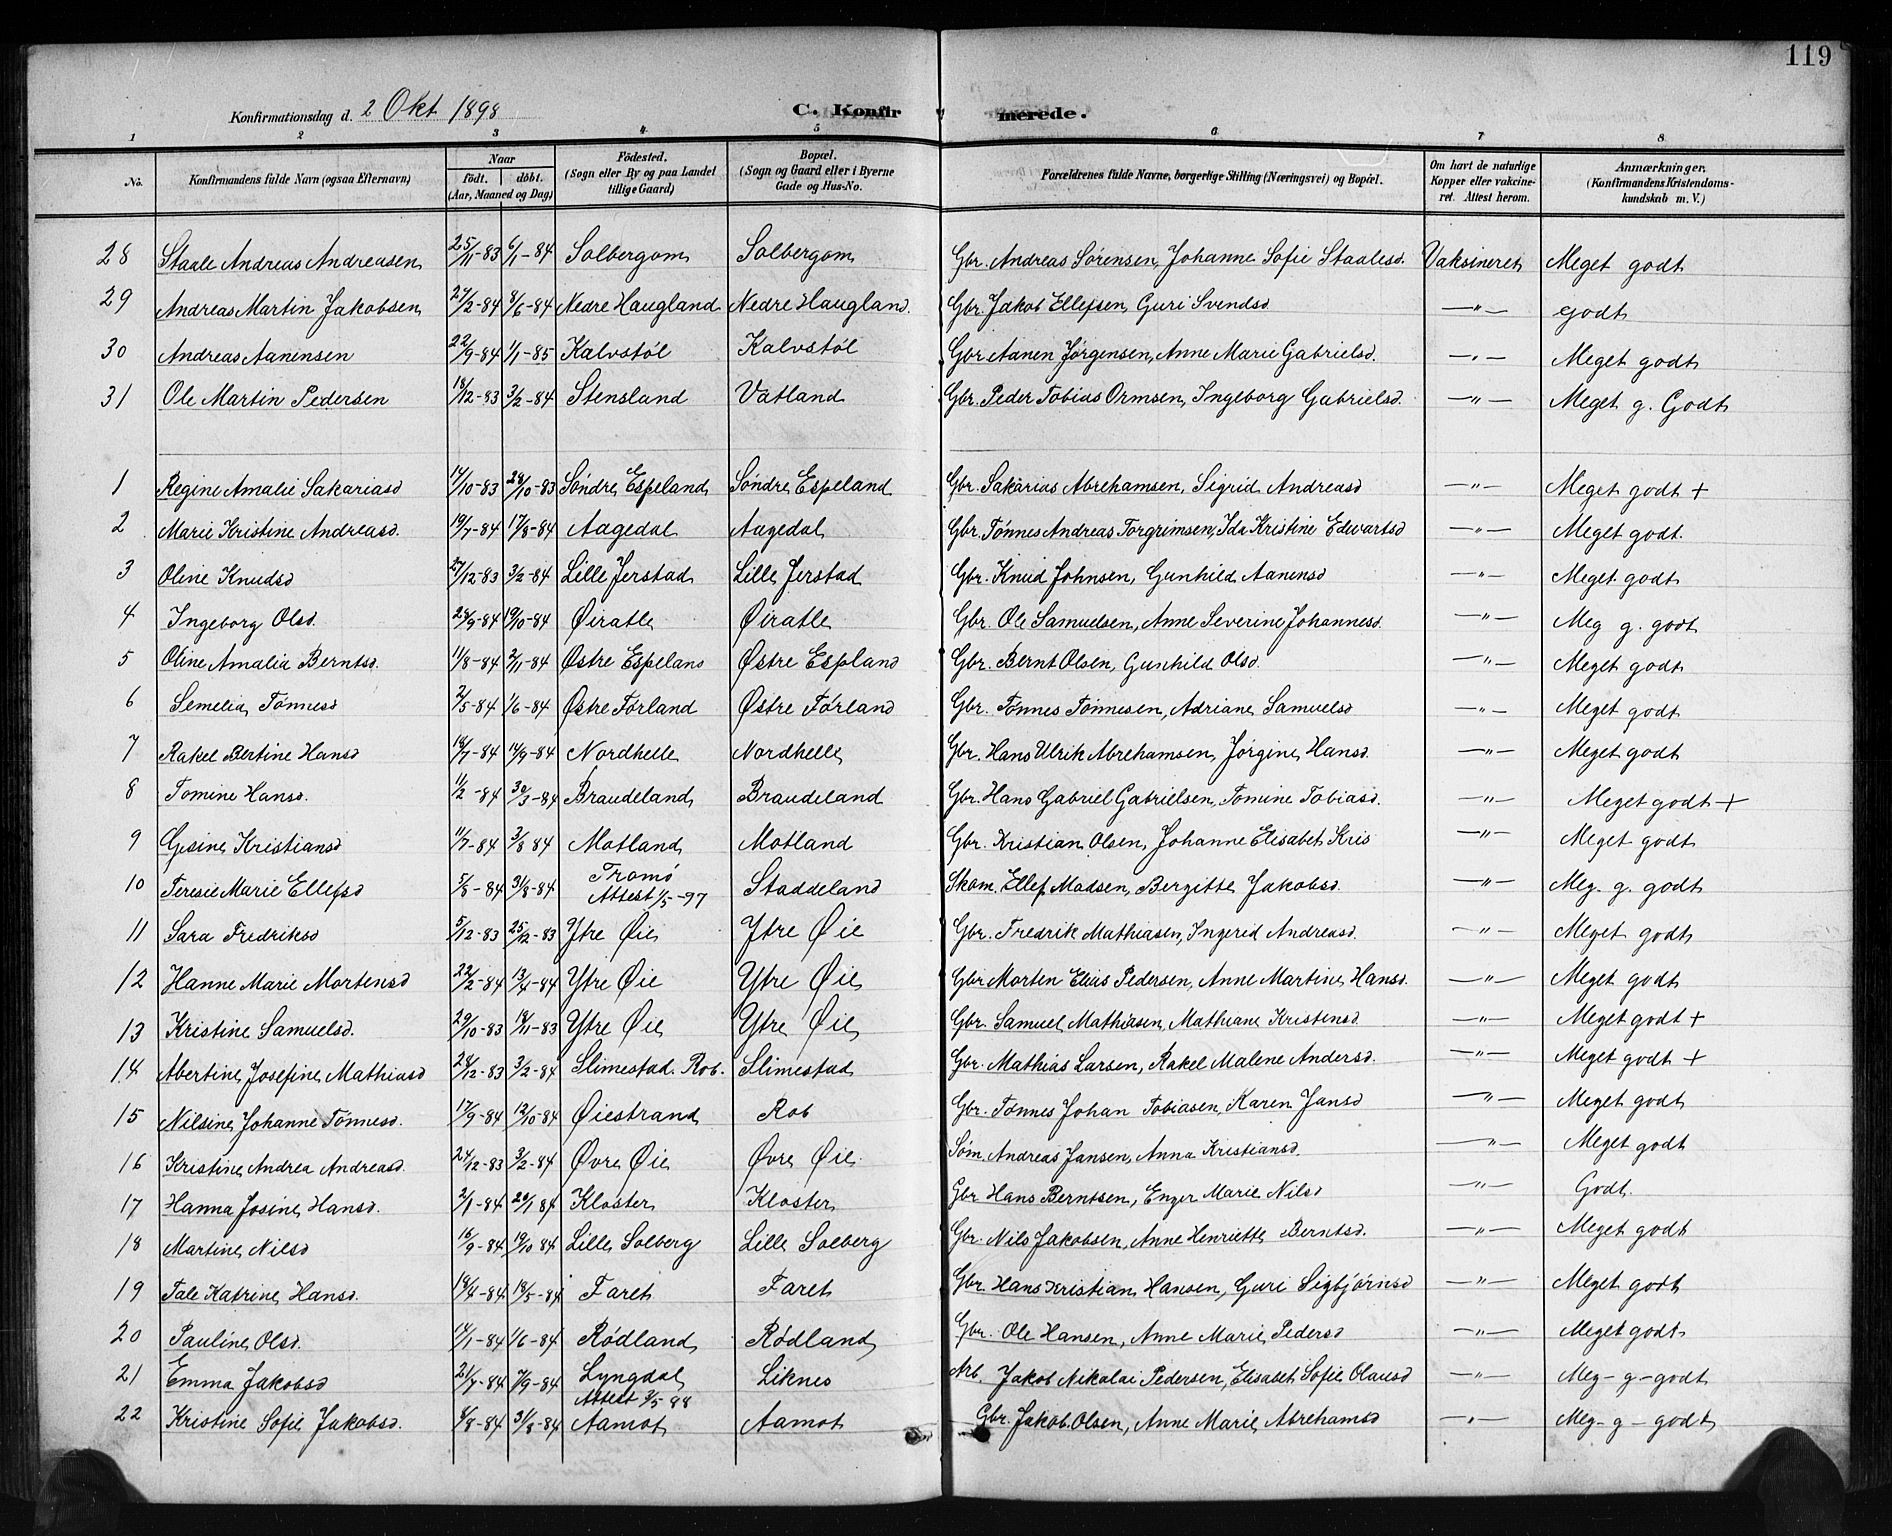 119
Konfirmationsdag d. 2 Okt 1898 C. Konfirmerede.
1 2 3 4 5 6 7 8
No. Konfirmandens fulde Navn (ogsaa Efternavn) Naar födt. döbt. (Aar, Maaned og Dag) Födested. (Sogn eller By og paa Landet tillige Gaard) Bopæl. (Sogn og Gaard eller i Byerne Gade og Hus-No. Forældrenes fulde Navne, borgerlige Stilling (Næringsvei) og Bopæl. Om havt de naturlige Kopper eller vakcineret. Attest herom. Anmærkninger. (Konfirmandens Kristendomskundskab m. V.)
28 Staale Andreas Andreasen 25/11-83 6/1-84 Solbergom Solbergom Gbr. Andreas Sørensen, Johanne Sofie Staalesd. Vaksineret Meget godt
29 Andreas Martin Jakobsen 27/2-84 8/6-84 Nedre Haugland Nedre Haugland. Gbr. Jakob Ellefsen, Guri Svendsd —"— godt
30 Andreas Aanensen 22/9-84 1/1-85 Kalvstøl Kalvstøl Gbr. Aanen Jørgensen, Anne Marie Gabrielsd. —"— Meget godt
31 Ole Martin Pedersen 18/12-83 3/2-84 Stensland Vatland Gbr. Peder Tobias Ormsen, Ingeborg Gabrielsd. —"— Meget g. Godt
1 Regine Amalie Sakariasd 14/10-83 28/10-83 Søndre Espeland Søndre Espeland Gbr. Sakarias Abrehamsen, Sigrid Andreasd —"— Meget godt +
2 Marie Kristine Andreasd. 19/7-84 17/8-84 Aagedal Aagedal Gbr. Tønnes Andreas Torgrimsen, Ida Kristine Edvartsd —"— Meget godt.
3 Oline Knudsd 27/12-83 3/2-84 Lille Jerstad Lille Jerstad Gbr. Knud Johnsen, Gunhild Aanensd —"— Meget godt
4 Ingeborg Olsd. 28/9-84 19/10-84 Øiratle Øiratle Gbr. Ole Samuelsen, Anne Severine Johannesd. —"— Meg g. godt
5 Oline Amalia Berntsd. 11/8-84 2/11-84 Østre Espeland Østre Espland Gbr. Bernt Olsen, Gunhild Olsd. —"— Meget godt
6 Semelia Tønnesd 2/5-84 1/6-84 Østre Førland Østre Førland Gbr. Tønnes Tønnesen, Adriane Samuelsd —"— Meget godt
7 Rakel Bertine Hansd 18/7-84 14/9-84 Nordhelle Nordhelle Gbr. Hans Ulrik Abrehamsen, Jørgine Hansd. —"— Meget godt
8 Tomine Hansd. 11/2-84 30/3-84 Braudeland Braudeland Gbr. Hans Gabriel Gabrielsen, Tomine Tobiasd. —"— Meget godt +
9 Gesine Kristiansd 11/7-84 3/8 84 Motland Motland Gbr. Kristian Olsen, Johanne Elisabet Kris —"— Meget godt
10 Teresie Marie Ellefsd 5/8-84 31/8-84 Tromø Attest 1/5-97 Staddeland Skom. Ellef Madsen, Bergitte Jakobsd. —"— Meg. g. godt
11 Sara Fredriksd 5/12-83 25/12-83 Ytre Øie Ytre Øie Gbr. Fredrik Mathiasen, Ingerid Andreasd. —"— Meget godt
12 Hanne Marie Mortensd 22/2-84 13/4-84 Ytre Øie Ytre Øie Gbr Morten Elias Pedersen, Anne Martine Hansd. —"— Meget godt
13 Kristine Samuelsd. 29/10-83 18/11-83 Ytre Øie Ytre Øie Gbr. Samuel Mathiasen, Mathiane Kristensd. —"— Meget godt +
14 Abertine Josefine Mathiasd 24/12-83 3/2-84 Slimestad. Rob. Slimestad Gbr. Mathias Larsen, Rakel Malene Andersd. —"— Meget godt +
15 Nilsine Johanne Tønnesd. 17/9-84 12/10-84 Øiestrand Rob Gbr. Tønnes Johan Tobiasen, Karen Jansd —"— Meget godt
16 Kristine Andrea Andreasd. 24/12-83 3/2-84 Øvre Øie Øvre Øie Søm. Andreas Jansen, Anna Kristiansd. —"— Meget godt
17 Hanna Josine Hansd. 2/1-84 20/1 84 Kloster Kloster Gbr Hans Berntsen, Enger Marie Nilsd —"— Godt.
18 Martine Nilsd 16/9-84 19/10 84 Lille Solberg Lille Solberg Gbr. Nils Jakobsen, Anne Henriette Berntsd. —"— Meget godt
19 Tale Katrine Hansd. 14/4-84 18/5-84 Faret Faret Gbr. Hans Kristian Hansen, Guri Sigbjørnsd —"— Meget godt
20 Pauline Olsd. 14/1-84 1/6-84 Rødland Rødland Gbr. Ole Hansen, Anne Marie Pedersd —"— Meget godt
21 Emma Jakobsd 21/7-84 7/9-84 Lyngdal Attest 3/5-98 Liknes Arb. Jakob Nikolai Pedersen, Elisabet Sofie Olausd —"— Meg-g-godt
22 Kristine Sofie Jakobsd. 8/8-84 31/8-84 Aamot Aamot Gbr. Jakob Olsen, Anne Marie Abrehamsd —"— Meg-g-godt